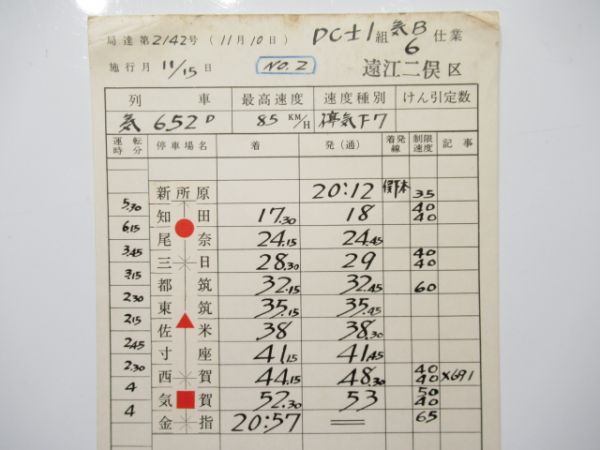 局達第2142号 (11月10日) DC士1組 気B6 仕業
施行月 11/15 日 NO.2 遠江二俣区
列車 最高速度 速度種別 けん引定数
気 652D 85 KM/H 停気下7
運転時分 停車場名 着 発(通) 着発線 制限速度 記事
新所原 20:12 35
5.30
知田 17.30 18 40 40
6.15
尾奈 24.15 24.45
3.45
三日 28.30 29 40 40
3.15
都筑 32.15 32.45 60
2.30
東筑 35.15 35.45
2.15
佐米 38 38.30
2.45
寸座 41.15 41.45
2.30
西賀 44.15 48.30 40 40 ×691
4
気賀 52.30 53 50 40
4
金指 20:57 = 65